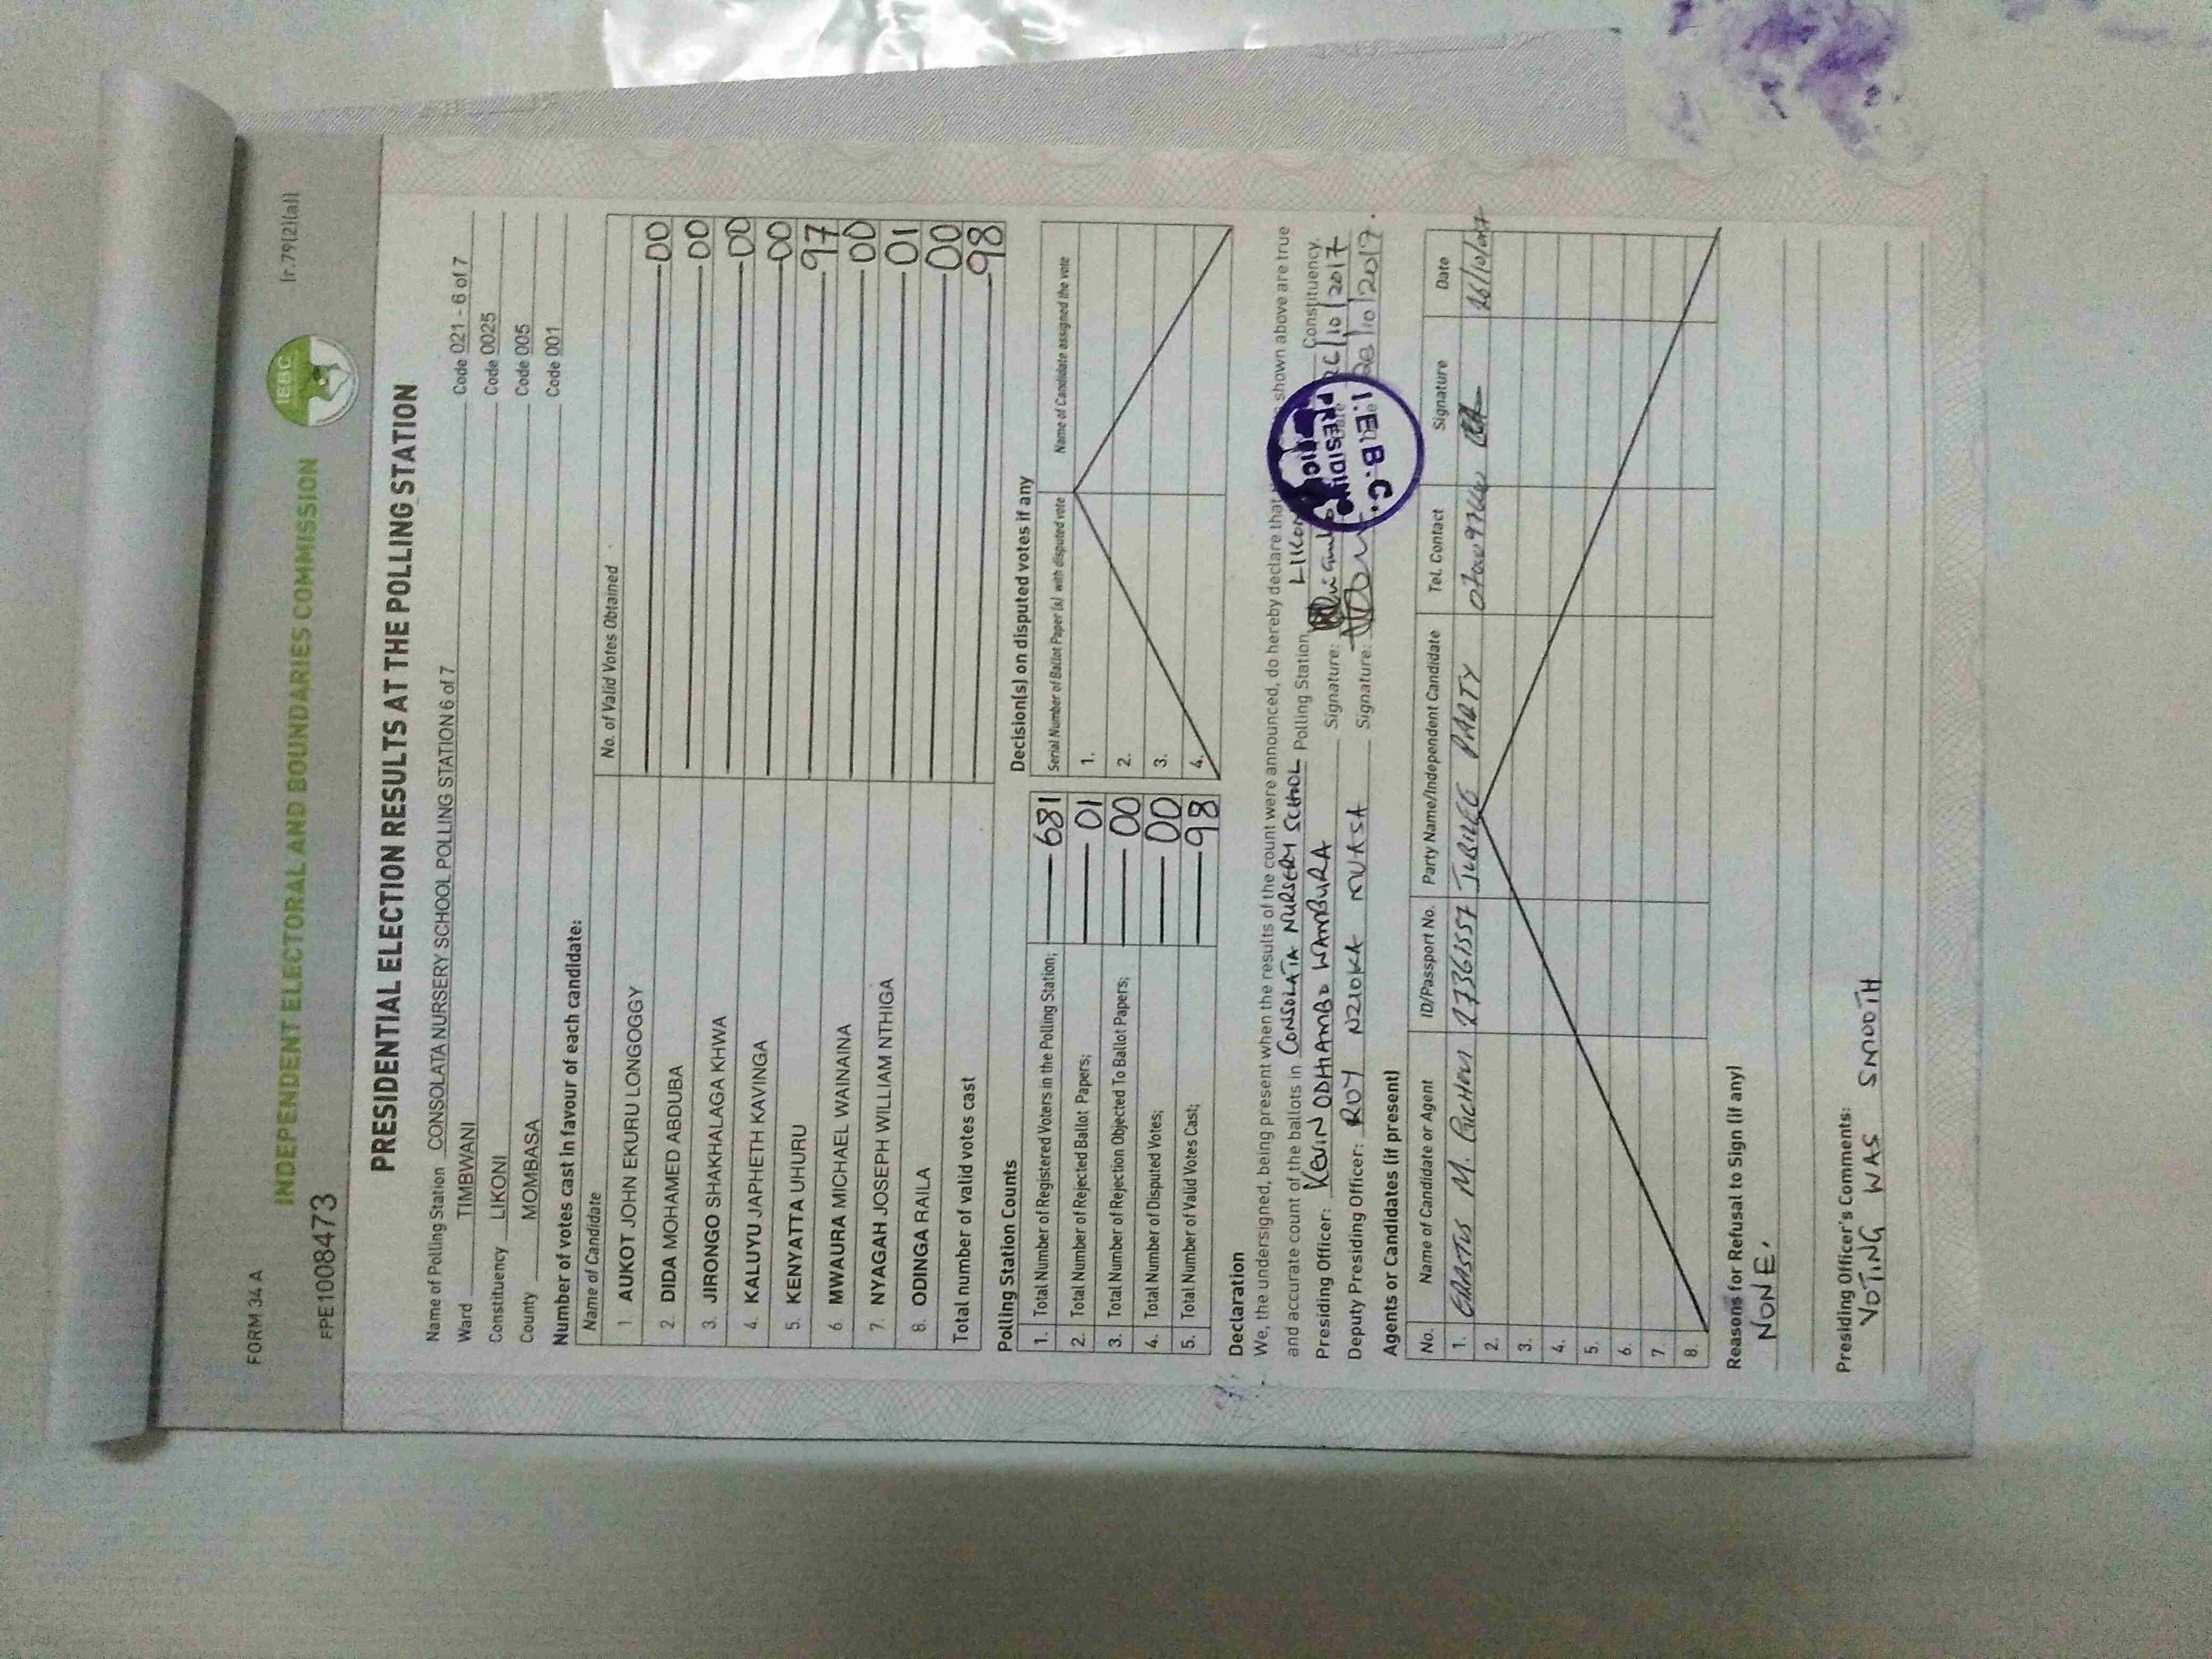 FORM 34 A
(r.79(2)(a))
INDEPENDENT ELECTORAL AND BOUNDARIES COMMISSION
IEBC
EPE1008473
PRESIDENTIAL ELECTION RESULTS AT THE POLLING STATION
Name of Polling Station CONSOLATA NURSERY SCHOOL POLLING STATION 6 of 7 Code 021 - 6 of 7
Ward TIMBWANI Code 0025
Constituency LIKONI Code 005
County MOMBASA Code 001
Number of votes cast in favour of each candidate:
Name of Candidate No. of Valid Votes Obtained
1. AUKOT JOHN EKURU LONGOGGY 00
2. DIDA MOHAMED ABDUBA 00
3. JIRONGO SHAKHALAGA KHWA 00
4. KALUYU JAPHETH KAVINGA 00
5. KENYATTA UHURU 97
6. MWAURA MICHAEL WAINAINA 00
7. NYAGAH JOSEPH WILLIAM NTHIGA 01
8. ODINGA RAILA 00
Total number of valid votes cast 98
Polling Station Counts
1. Total Number of Registered Voters in the Polling Station; 681
2. Total Number of Rejected Ballot Papers; 01
3. Total Number of Rejection Objected To Ballot Papers; 00
4. Total Number of Disputed Votes; 00
5. Total Number of Valid Votes Cast; 98
Decision(s) on disputed votes if any
Serial Number of Ballot Paper (s) with disputed vote Name of Candidate assigned the vote
1.
2.
3.
4.
Declaration
We, the undersigned, being present when the results of the count were announced, do hereby declare that shown above are true
and accurate count of the ballots in CONSOLATA NURSERY SCHOOL Polling Station Constituency.
Presiding Officer: KEVIN ODHIAMBO WAMBURA Signature: 26/10/2017
Deputy Presiding Officer: ROY NZIOKA MUASA Signature: 26/10/2017.
I.E.B.C. PRESIDING
Agents or Candidates (if present)
No. Name of Candidate or Agent ID/Passport No. Party Name/Independent Candidate Tel. Contact Signature Date
1. ERASTUS M. 27361557 JUBILEE PARTY 26/10/2017
2.
3.
4.
5.
6.
7.
8.
Reasons for Refusal to Sign (if any)
NONE.
Presiding Officer's Comments:
VOTING WAS SMOOTH